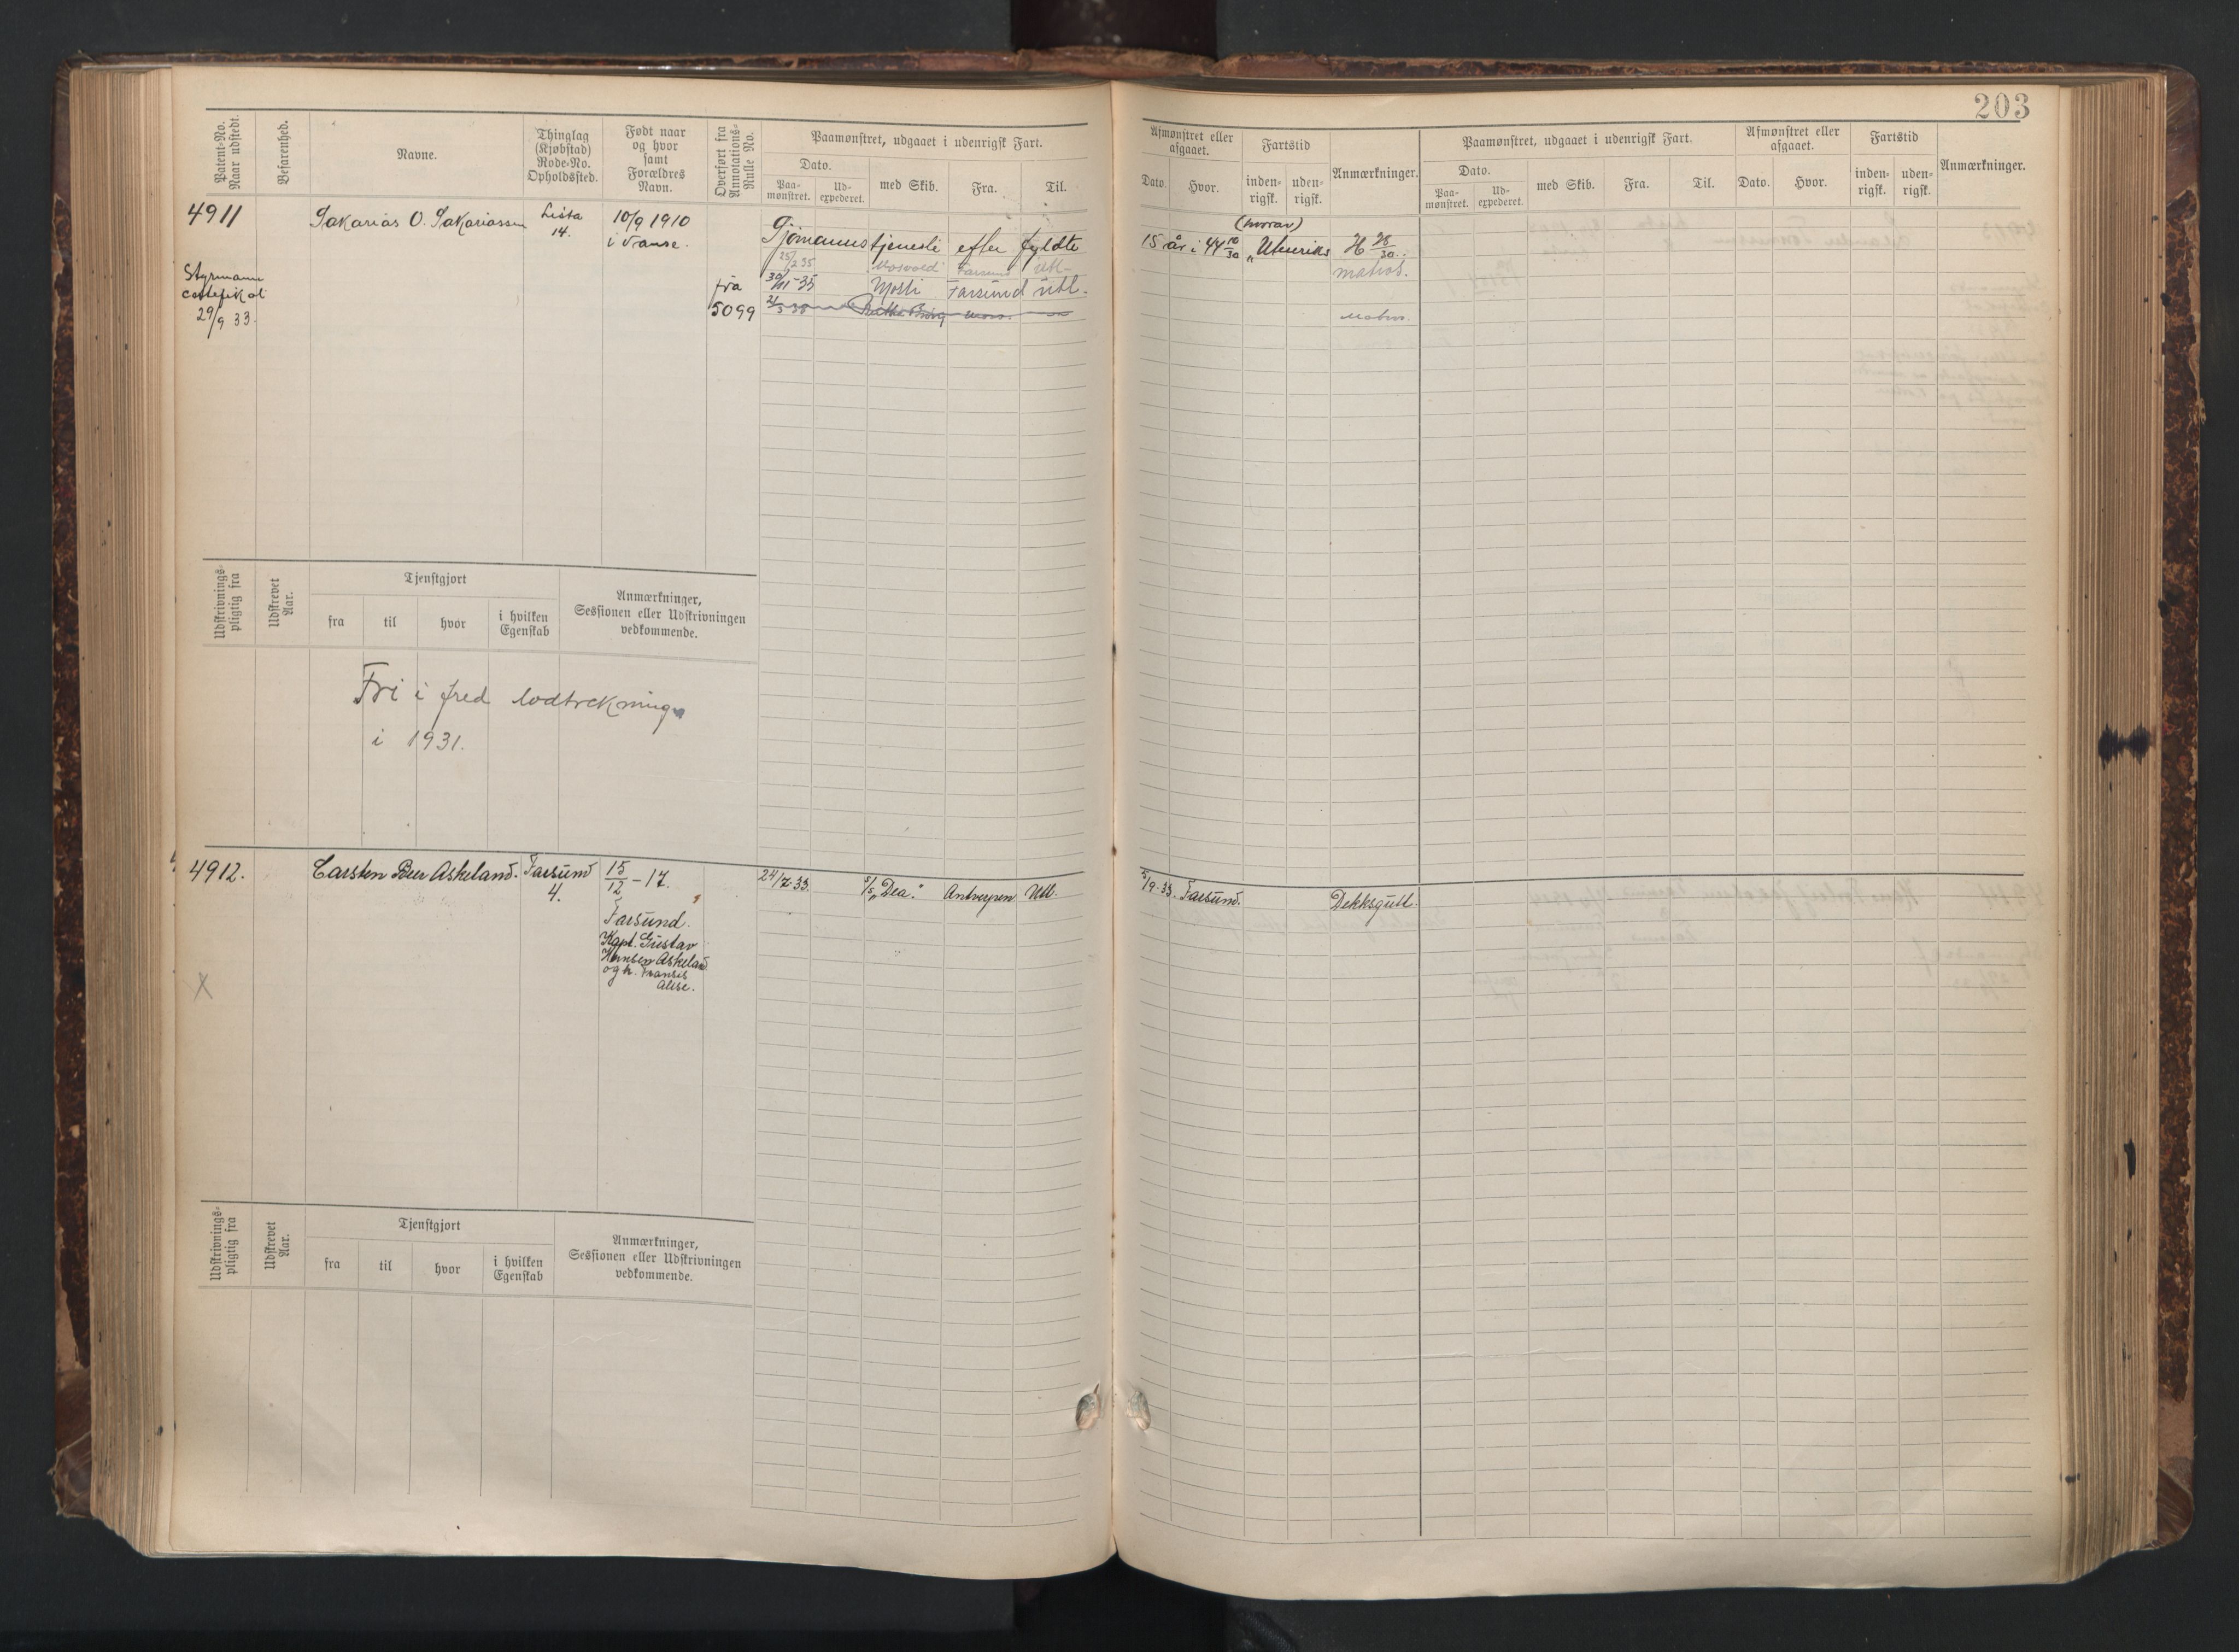 203
Patent-No.
Naar udstedt.
Befarenhed.
Navne.
Thinglag
(Kjøbstad)
Rode-No.
Opholdssted.
Født naar
og hvor
samt
Forældres
Navn.
Overført fra
Annotations-
Rulle No.
Paamønstret, udgaaet i udenrigsk Fart.
Dato.
Paa-
mønstret.
Ud-
expederet.
med Skib.
Fra.
Til.
Afmønstret eller
afgaaet.
Dato.
Hvor.
Fartstid
inden-
rigsk.
uden-
rigsk.
Anmærkninger.
Paamønstret, udgaaet i udenrigsk Fart.
Dato.
Paa-
mønstret.
Ud-
expederet.
med Skib.
Fra.
Til.
Afmønstret eller
afgaaet.
Dato.
Hvor.
Fartstid
inden-
rigsk.
uden-
rigsk.
Anmærkninger.
4911
Sakarias O. Sakariassen
Lista
14.
10/9 1910
i Vanse.
Styrmann
29/9 33.
fra
5099
Sjømannstjeneste efter fyldte
15 år i 44 10/30 (hvorav) Utenriks
25/2 35 Mosvold Farsund utl.
matros.
30/11-35 Mosli Farsund utl.
Matros.
Udskrivnings-
pligtig fra
Udskrevet
Aar.
Tjenstgjort
fra
til
hvor
i hvilken
Egenskab
Anmærkninger,
Sessionen eller Udskrivningen
vedkommende.
Fri i fred lodtrekning
i 1931.
4912.
Carsten Beer Askeland.
Farsund
4.
15/12 - 17.
i
Farsund.
Kapt. Gustav
Hansen Askeland
og h.
Alise.
24/7-33. S/S „Dea." Antwerpen Utl.
5/9-33. Farsund. Dekksgutt.
X
Udskrivnings-
pligtig fra
Udskrevet
Aar.
Tjenstgjort
fra
til
hvor
i hvilken
Egenskab
Anmærkninger,
Sessionen eller Udskrivningen
vedkommende.